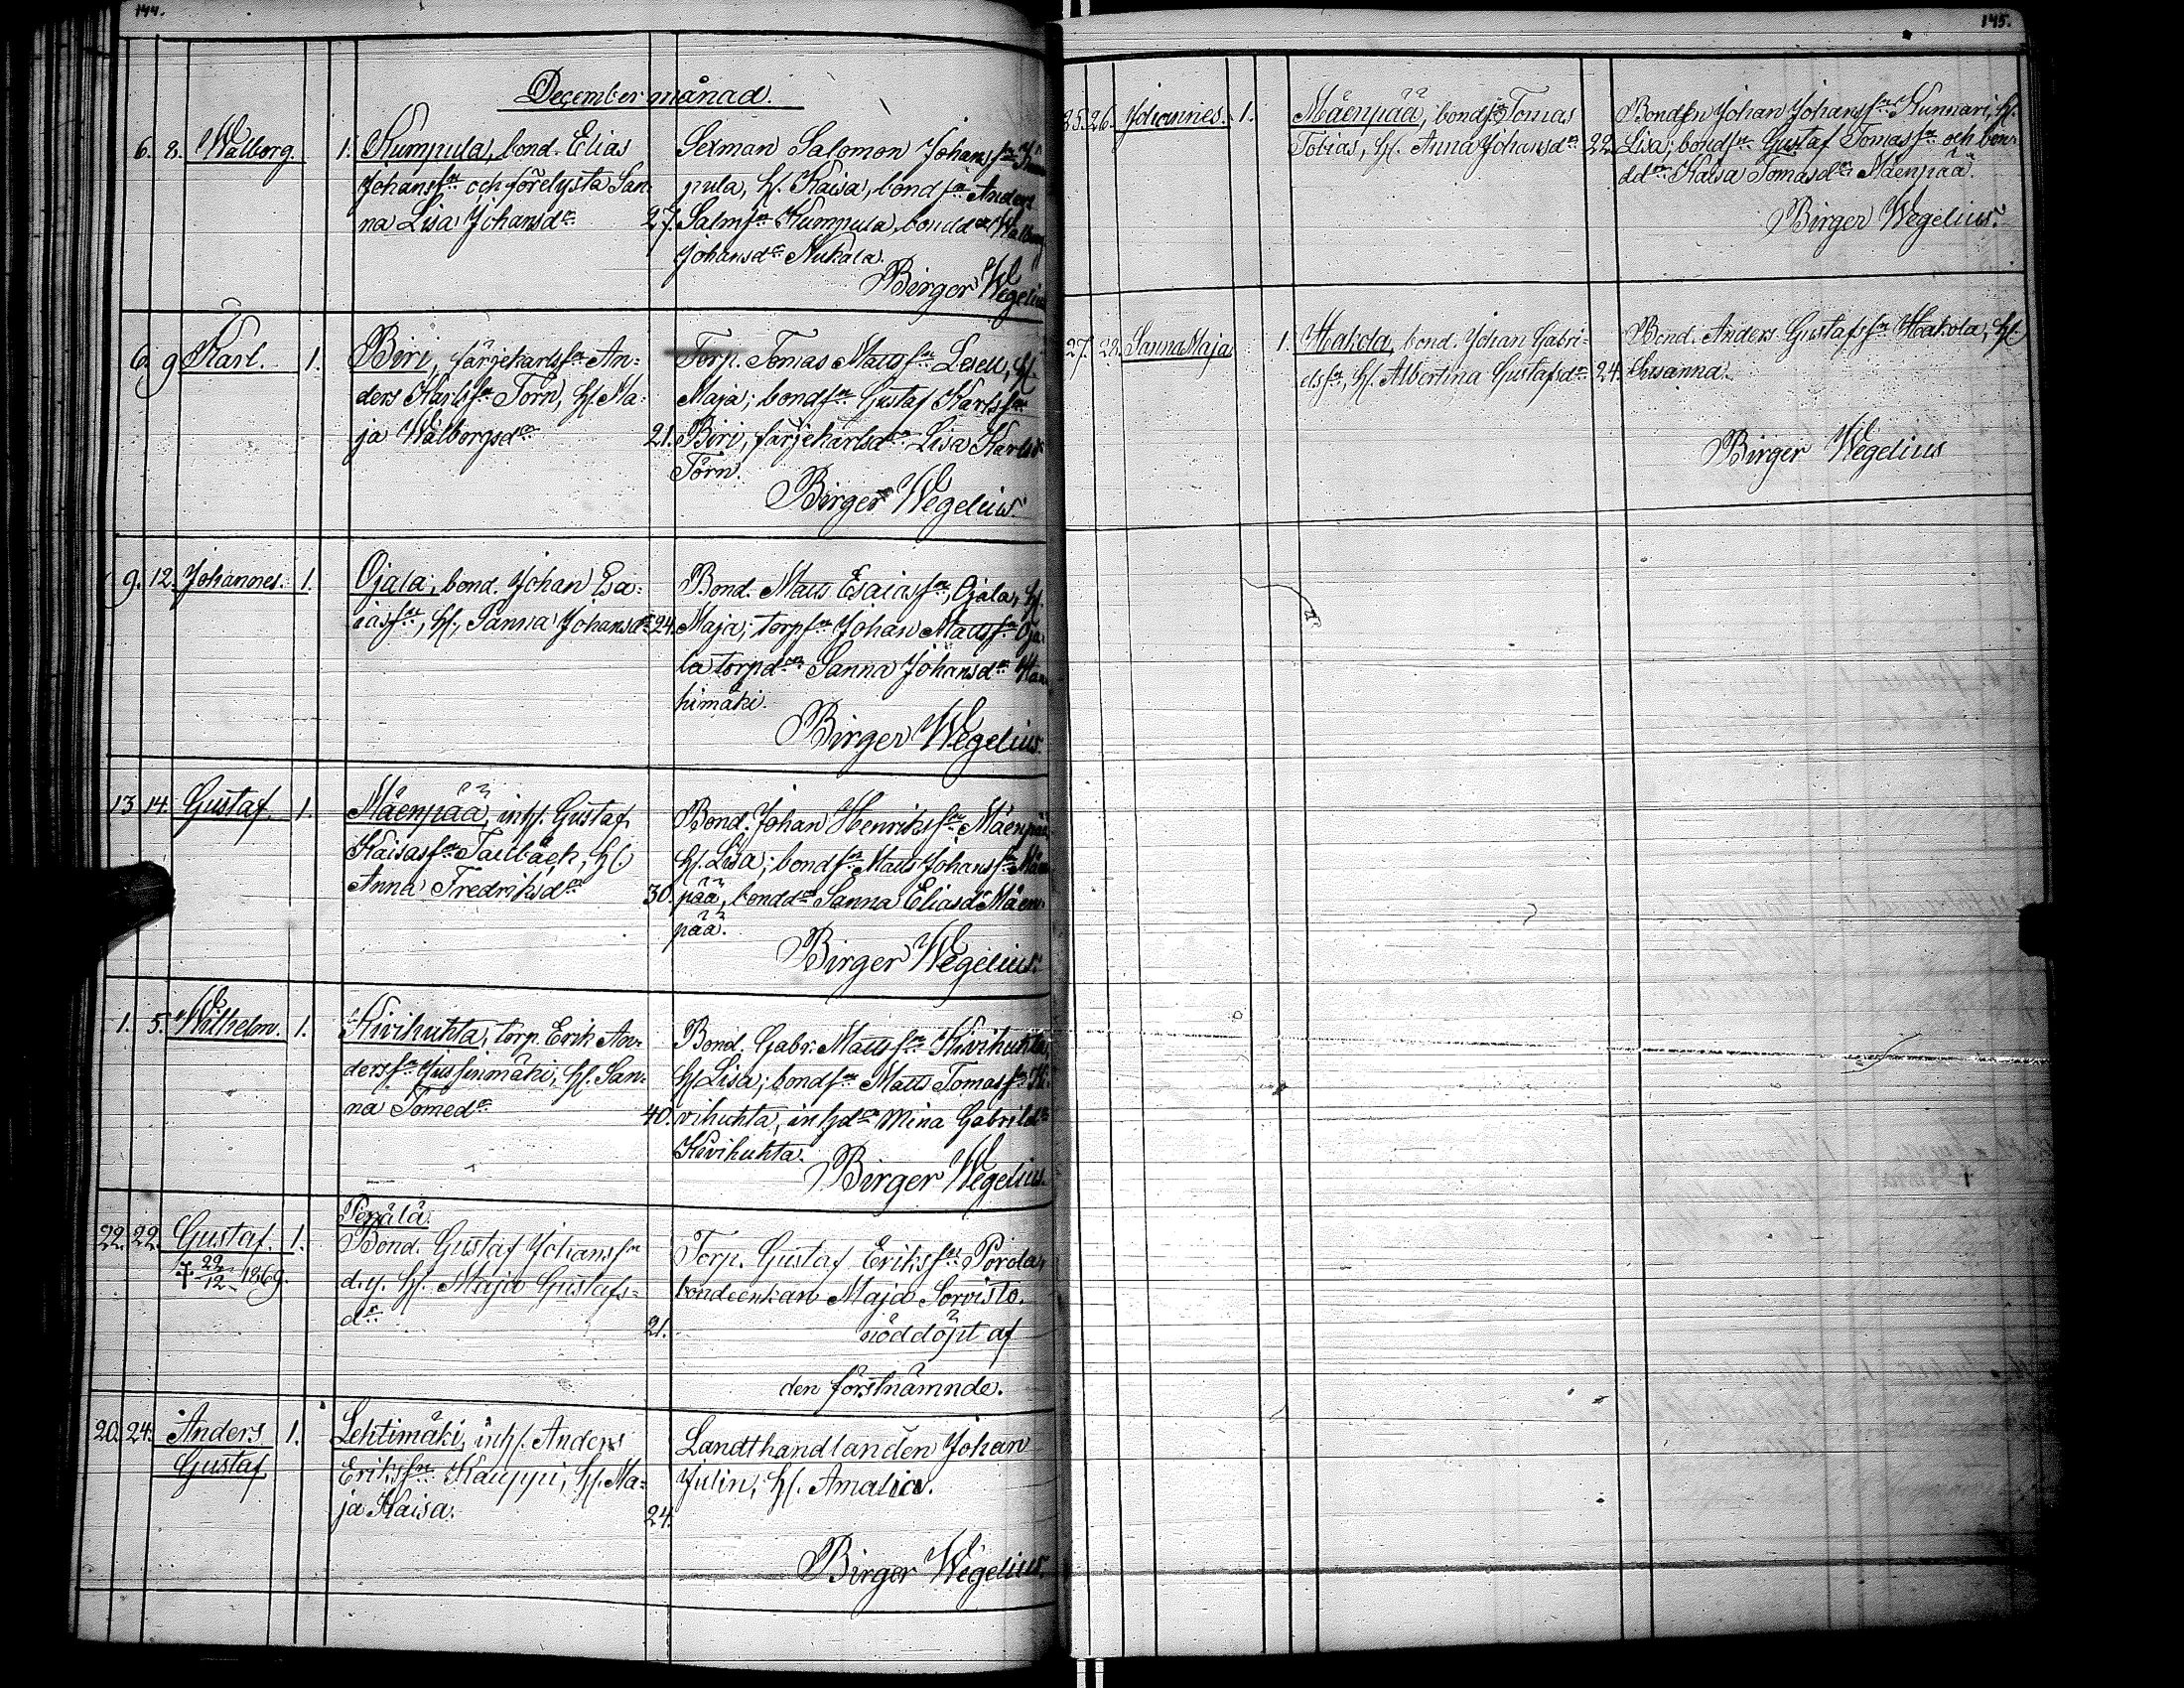 144.
December månad.
6. 8. Walborg. 1. Kumpula, bond. Elias
Johansson och förelysta San-
na Lisa Johansdr
27.
Sexman Salomon Johansson Kum
pula, h. Kaisa, bondsn Anders
Salomsn Kumpula, bonddn Walborg
Johansdr Nukala.
Birger Wegelius
6. 9 Karl. 1. Biri, färjekarlssn An-
ders Karlssn Törn, h. Ma-
ja Walborgsdr
21.
Torp. Tomas Mattssn Leseli, h.
Maja; bondsn Gustaf Karlssn
Biri, färjekarlsdn Lisa Karlsdr
Törn.
Birger Wegelius.
9. 12. Johannes. 1. Ojala, bond. Johan Esa-
iassn, h. Sanna Johansdr
24.
Bond. Matts Esaiassn, Ojala, h.
Maja; torpsn Johan Mattssn Oja-
la torpdn Sanna Johansdr
himäki.
Birger Wegelius.
13 14. Gustaf. 1. Mäenpää, inh. Gustaf
Kaisassn Tallbäck, h.
Anna Fredriksdr
30.
Bond. Johan Henrikssn Mäenpää
h. Lisa; bondsn Matts Johanssn Mäen
pää, bonddn Sanna Eliasdr Mäen-
pää.
Birger Wegelius.
1. 5. Wilhelm. 1. Kivihuhta, torp. Erik An-
derssn Jussinmäki, h. San-
na Tomedr
40.
Bond. Gabr. Mattssn Kivihuhta,
h. Lisa; bondsn Matts Tomassn Ki-
vihuhta, inhdn Mina Gabrildr
Kivihuhta.
Birger Wegelius.
22. 22. Gustaf. 1. Penälä.
† 22/12 1869.
Bond. Gustaf Johanssn
d.y. h. Maja Gustafs-
dr
21.
Torp. Gustaf Erikssn Porola,
bondeenkan Maja Sorvisto.
nöddöpt af
den förstnämnde.
20. 24. Anders 1. Lehtimäki, inh. Anders
Gustaf
Erikssn Kauppi, h. Ma-
ja Kaisa.
24.
Landthandlanden Johan
Julin, h. Amalia.
Birger Wegelius.
145.
25. 26. Johannes. 1. Mäenpää, bondsn Tomas
Tobias, h. Anna Johansdr
22.
Bonden Johan Johanssn Kunnari, h.
Lisa; bondsn Gustaf Tomassn och bon-
ddn Kaisa Tomasdr Mäenpää.
Birger Wegelius.
27. 28. Sanna Maja 1. Hakola, bond. Johan Gabri-
elssn, h. Albertina Gustafsdr
24.
Bond. Anders Gustafssn Hakola, h.
Susanna.
Birger Wegelius